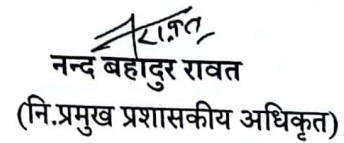 रावत
नन्द बहादुर रावत
(नि.प्रमुख प्रशासकीय अधिकृत)